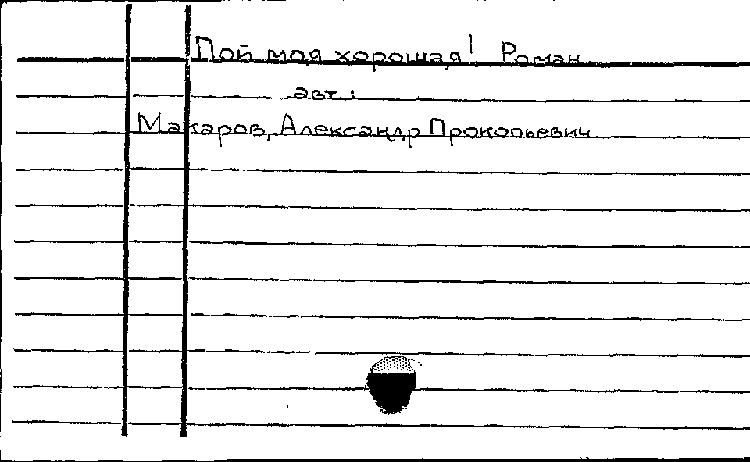 Пой моя хорошая! Роман
авт:
Макаров, Александр Прокопьевич